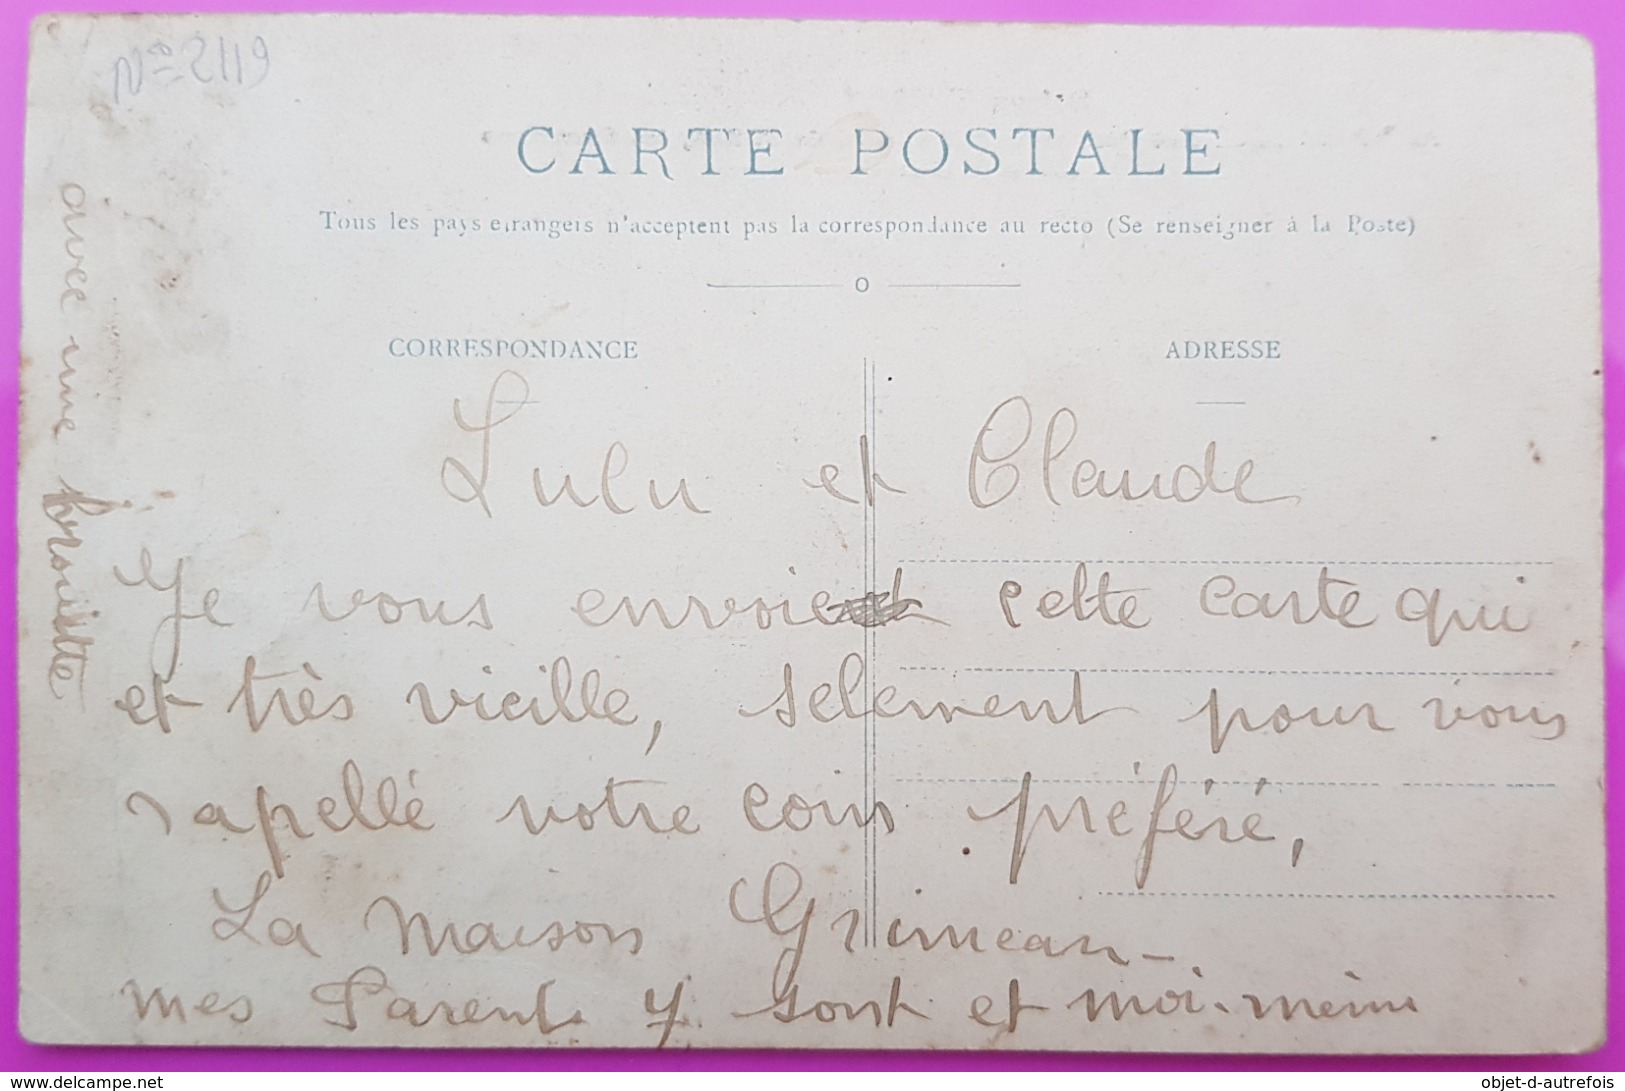 Nº 2119
CARTE POSTALE
Tous les pays etrangers n'acceptent pas la correspondance au recto (Se renseigner à la Poste)
CORRESPONDANCE
ADRESSE
Lulu et Claude
Je vous envoie cette carte qui
et très vieille, selement pour vous
rapellé votre coin préféré,
La maison Grimeau_.
mes Parents y sont et moi-même
avec une brouette
www.delcampe.net
objet-d-autrefois